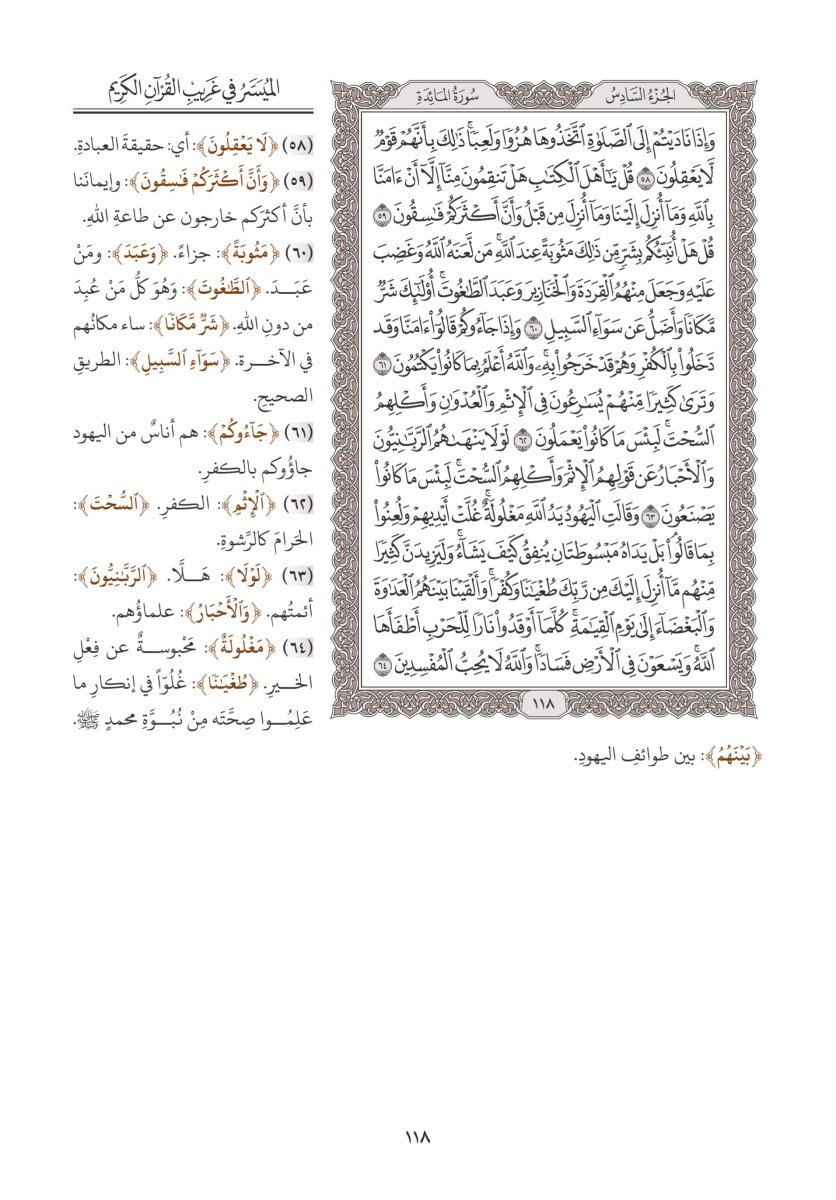 الجُزْءُ السَّادِسُ
سُورَةُ المَائِدَةِ
وَإِذَا نَادَيْتُمْ إِلَى ٱلصَّلَوٰةِ ٱتَّخَذُوهَا هُزُوٗا وَلَعِبٗاۚ ذَٰلِكَ بِأَنَّهُمْ قَوْمٞ
لَّا يَعْقِلُونَ ٥٨ قُلْ يَٰٓأَهْلَ ٱلْكِتَٰبِ هَلْ تَنقِمُونَ مِنَّآ إِلَّآ أَنْ ءَامَنَّا
بِٱللَّهِ وَمَآ أُنزِلَ إِلَيْنَا وَمَآ أُنزِلَ مِن قَبْلُ وَأَنَّ أَكْثَرَكُمْ فَٰسِقُونَ ٥٩
قُلْ هَلْ أُنَبِّئُكُم بِشَرّٖ مِّن ذَٰلِكَ مَثُوبَةً عِندَ ٱللَّهِۚ مَن لَّعَنَهُ ٱللَّهُ وَغَضِبَ
عَلَيْهِ وَجَعَلَ مِنْهُمُ ٱلْقِرَدَةَ وَٱلْخَنَازِيرَ وَعَبَدَ ٱلطَّٰغُوتَۚ أُوْلَٰٓئِكَ شَرّٞ
مَّكَانٗا وَأَضَلُّ عَن سَوَآءِ ٱلسَّبِيلِ ٦٠ وَإِذَا جَآءُوكُمْ قَالُوٓاْ ءَامَنَّا وَقَد
دَّخَلُواْ بِٱلْكُفْرِ وَهُمْ قَدْ خَرَجُواْ بِهِۦۚ وَٱللَّهُ أَعْلَمُ بِمَا كَانُواْ يَكْتُمُونَ ٦١
وَتَرَىٰ كَثِيرٗا مِّنْهُمْ يُسَٰرِعُونَ فِي ٱلْإِثْمِ وَٱلْعُدْوَٰنِ وَأَكْلِهِمُ
ٱلسُّحْتَۚ لَبِئْسَ مَا كَانُواْ يَعْمَلُونَ ٦٢ لَوْلَا يَنْهَىٰهُمُ ٱلرَّبَّٰنِيُّونَ
وَٱلْأَحْبَارُ عَن قَوْلِهِمُ ٱلْإِثْمَ وَأَكْلِهِمُ ٱلسُّحْتَۚ لَبِئْسَ مَا كَانُواْ
يَصْنَعُونَ ٦٣ وَقَالَتِ ٱلْيَهُودُ يَدُ ٱللَّهِ مَغْلُولَةٌۚ غُلَّتْ أَيْدِيهِمْ وَلُعِنُواْ
بِمَا قَالُواْۘ بَلْ يَدَاهُ مَبْسُوطَتَانِ يُنفِقُ كَيْفَ يَشَآءُۚ وَلَيَزِيدَنَّ كَثِيرٗا
مِّنْهُم مَّآ أُنزِلَ إِلَيْكَ مِن رَّبِّكَ طُغْيَٰنٗا وَكُفْرٗاۚ وَأَلْقَيْنَا بَيْنَهُمُ ٱلْعَدَٰوَةَ
وَٱلْبَغْضَآءَ إِلَىٰ يَوْمِ ٱلْقِيَٰمَةِۚ كُلَّمَآ أَوْقَدُواْ نَارٗا لِّلْحَرْبِ أَطْفَأَهَا
ٱللَّهُۚ وَيَسْعَوْنَ فِي ٱلْأَرْضِ فَسَادٗاۚ وَٱللَّهُ لَا يُحِبُّ ٱلْمُفْسِدِينَ ٦٤
١١٨
المُيَسَّرُ في غَرِيبِ القُرْآنِ الكَرِيمِ
(٥٨) ﴿لَا يَعْقِلُونَ﴾: أي: حقيقةَ العبادةِ.
(٥٩) ﴿وَأَنَّ أَكْثَرَكُمْ فَٰسِقُونَ﴾: وإيمانَنا
بأنَّ أكثرَكم خارجون عن طاعةِ اللهِ.
(٦٠) ﴿مَثُوبَةً﴾: جزاءً. ﴿وَعَبَدَ﴾: ومَنْ
عَبَدَ. ﴿ٱلطَّٰغُوتَ﴾: وَهُوَ كلُّ مَنْ عُبِدَ
من دونِ اللهِ. ﴿شَرّٞ مَّكَانٗا﴾: ساء مكانُهم
في الآخرة. ﴿سَوَآءِ ٱلسَّبِيلِ﴾: الطريقِ
الصحيحِ.
(٦١) ﴿جَآءُوكُمْ﴾: هم أناسٌ من اليهود
جاؤُوكم بالكفرِ.
(٦٢) ﴿ٱلْإِثْمِ﴾: الكفرِ. ﴿ٱلسُّحْتَ﴾:
الحَرامَ كالرِّشوةِ.
(٦٣) ﴿لَوْلَا﴾: هَلَّا. ﴿ٱلرَّبَّٰنِيُّونَ﴾:
أئمتُهم. ﴿وَٱلْأَحْبَارُ﴾: علماؤُهم.
(٦٤) ﴿مَغْلُولَةٌ﴾: مَحْبوسةٌ عن فِعْلِ
الخيرِ. ﴿طُغْيَٰنٗا﴾: غُلُوّاً في إنكارِ ما
عَلِمُوا صِحَّتَه مِنْ نُبُوَّةِ محمدٍ ﷺ.
﴿بَيْنَهُمُ﴾: بين طوائفِ اليهودِ.
١١٨